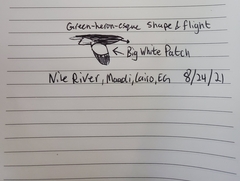 Green-heron-esque shape & flight
Big White Patch
Nile River, Maadi, Cairo, EG 8/24/21